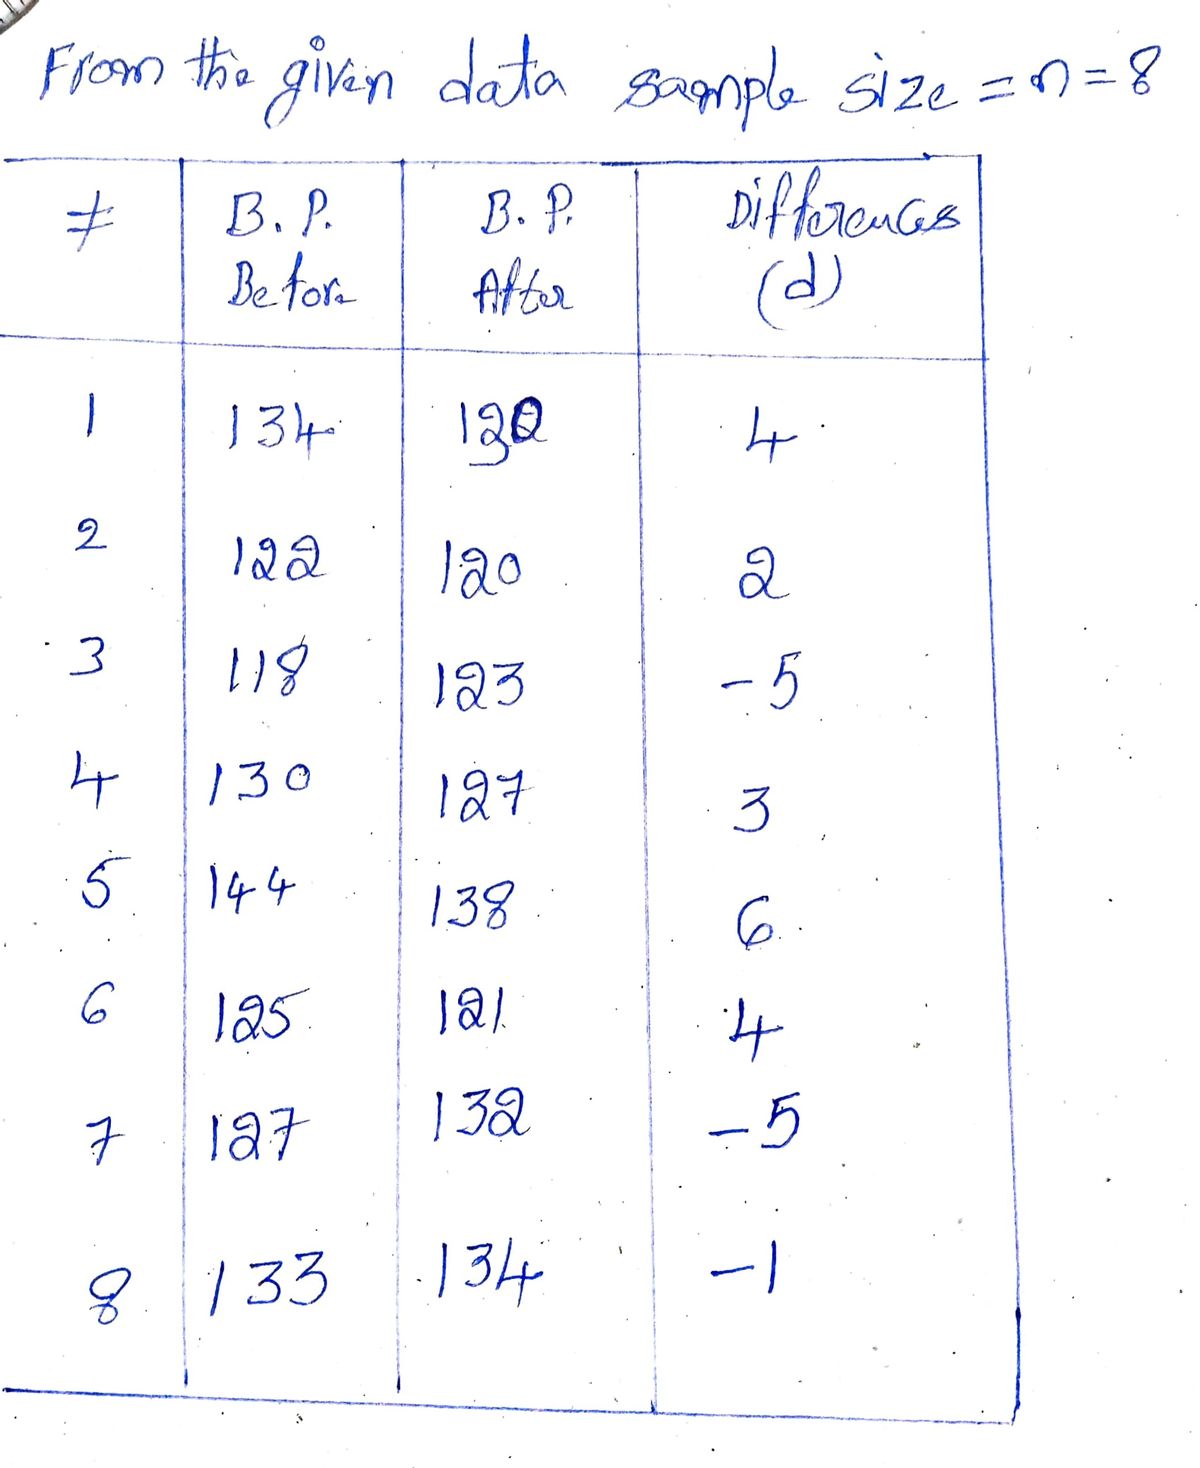 From the given data sample size = n = 8
# B.P. Before B.P. After Differences (d)
1 134 130 4
2 122 120 2
3 118 123 -5
4 130 127 3
5 144 138 6
6 125 121 4
7 127 132 -5
8 133 134 -1